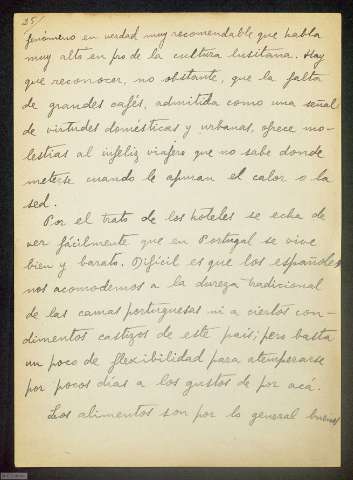 25/
fenómeno en verdad muy recomendable que habla
muy alto en pro de la cultura lusitana. Hay
que reconocer, no obstante, que la falta
de grandes cafés, admitida como una señal
de virtudes domésticas y urbanas, ofrece mo-
lestias al infeliz viajero que no sabe donde
meterse cuando le apuran el calor o la
sed.
Por el trato de los hoteles se echa de
ver fácilmente que en Portugal se vive
bien y barato. Difícil es que los españoles
nos acomodemos a la dureza tradicional
de las camas portuguesas ni a ciertos con-
dimentos castizos de este país; pero basta
un poco de flexibilidad para atemperarse
por pocos días a los gustos de por acá.
Los alimentos son por lo general buenos